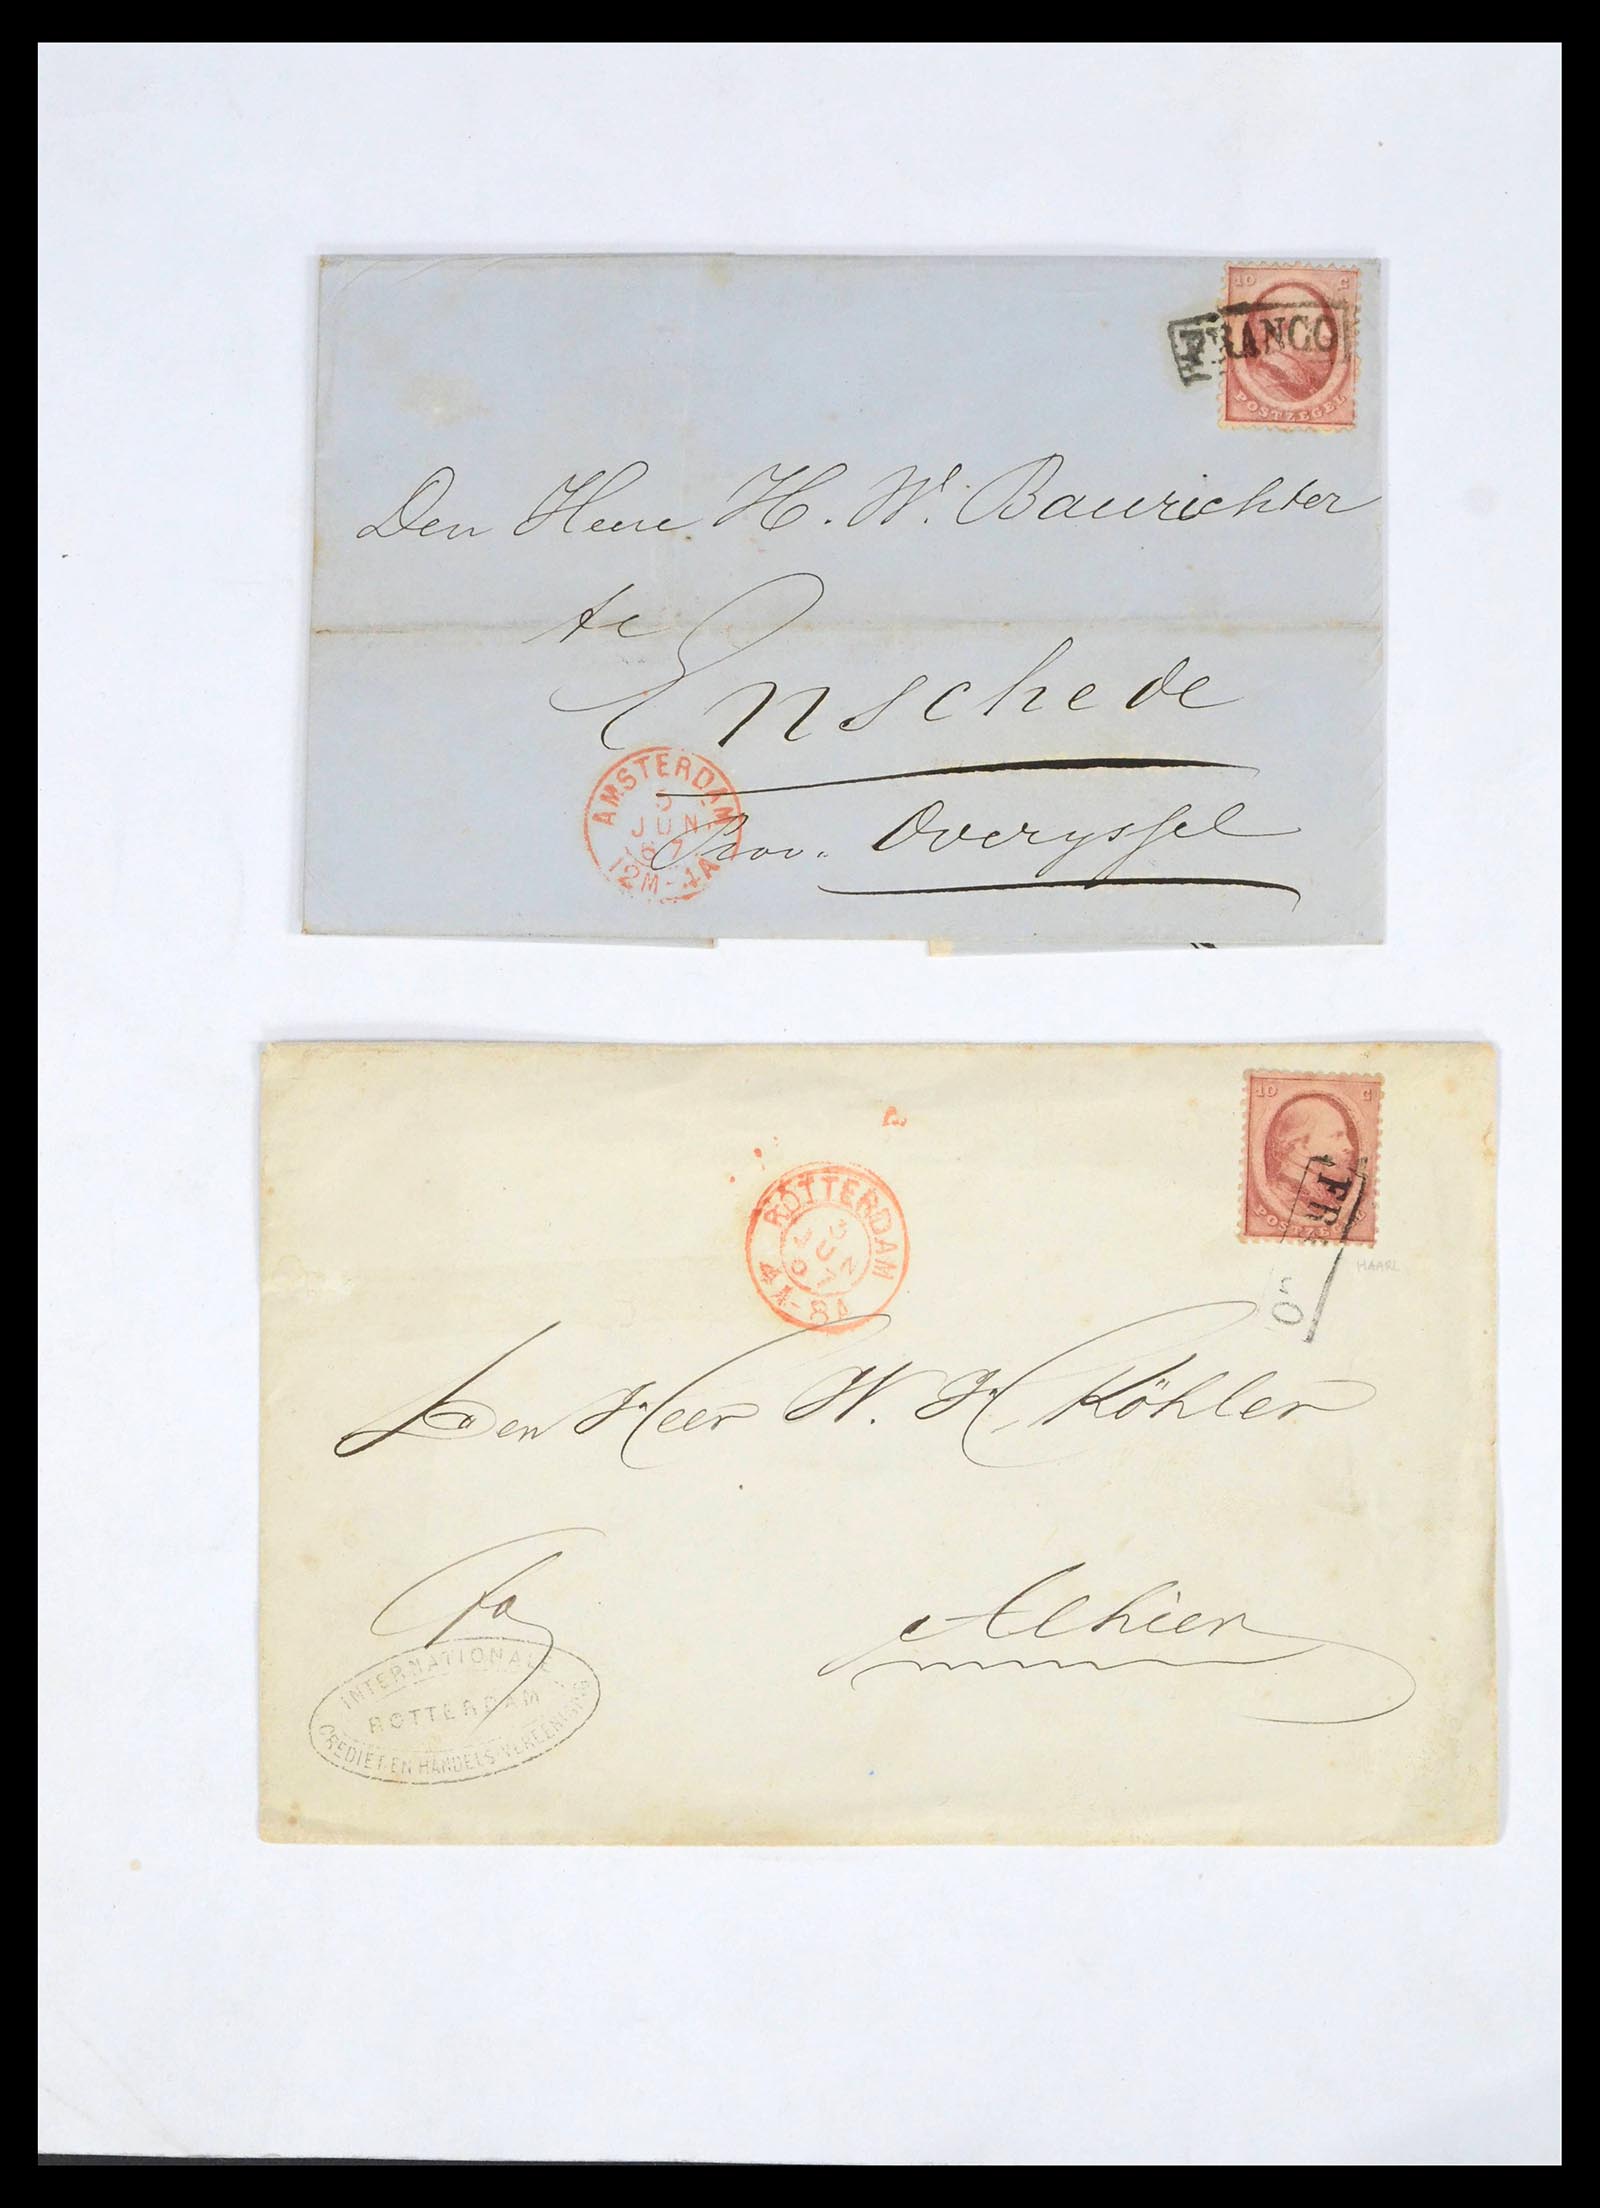 10 C
FRANCO
POSTZEGEL
Den Heere H. W. Baurichter
te
Enschede
AMSTERDAM
5
JUN
67
12M-4A
Prov. Overyssel
10 C
FR O
POSTZEGEL
HAARL
ROTTERDAM
4A-8A
Den Heer W. H. Köhler
Alhier
INTERNATIONALE
ROTTERDAM
CREDIET-EN HANDELS-VEREENIGING